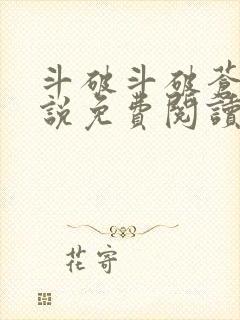 斗破斗破蒼
說免費閱讀
花寄